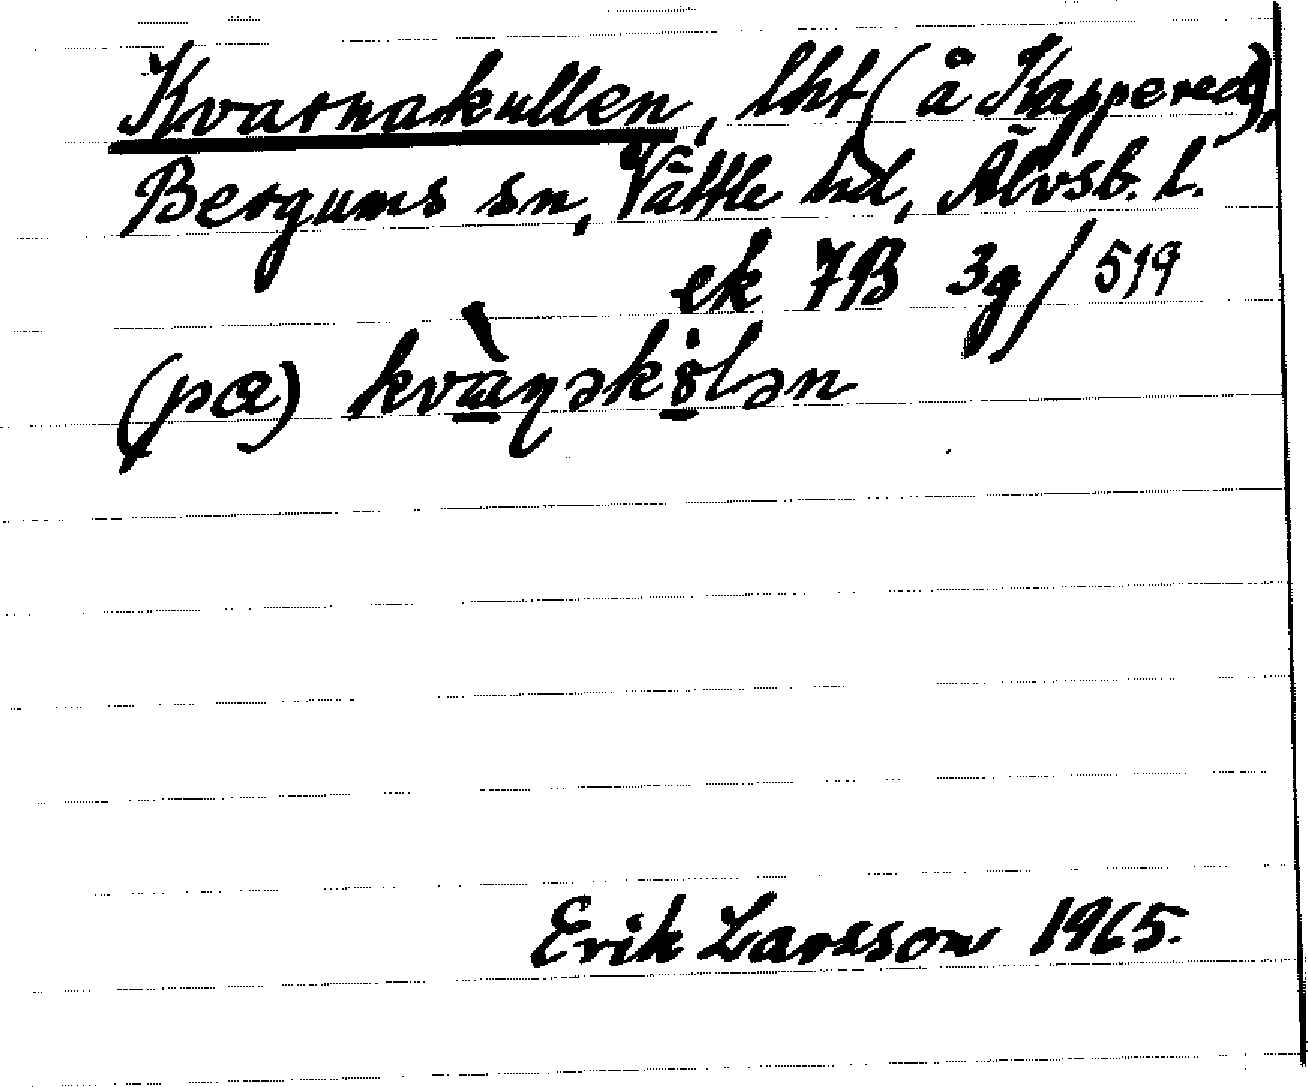 Kvarnakullen, lht (å Kappered),
Bergums sn, Vättle hd, Älvsb. l.
ek 7B 3g/519
(pɑ) kvàɳəkꞗlən
Erik Larsson 1965.